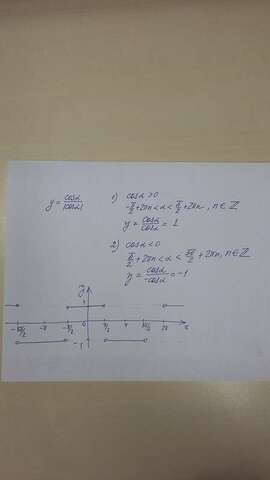 y = cosα / |cosα|
1) cosα > 0
-π/2 + 2πn < α < π/2 + 2πn, n ∈ ℤ
y = cosα / cosα = 1
2) cosα < 0
π/2 + 2πn < α < 3π/2 + 2πn, n ∈ ℤ
y = cosα / -cosα = -1
y
1
-3π/2 -π -π/2 0 π/2 π 3π/2 2π x
-1